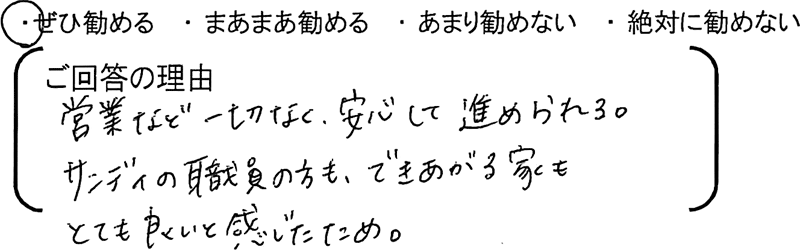 ・ぜひ勧める ・まあまあ勧める ・あまり勧めない ・絶対に勧めない
ご回答の理由
営業など一切なく、安心して進められる。
サンディの職員の方も、できあがる家も
とても良いと感じたため。